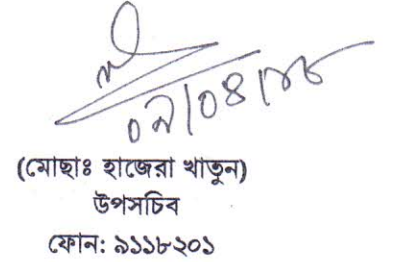 ০৯/০৪/১৮
(মোছাঃ হাজেরা খাতুন)
উপসচিব
ফোন: ৯১১৮২০১